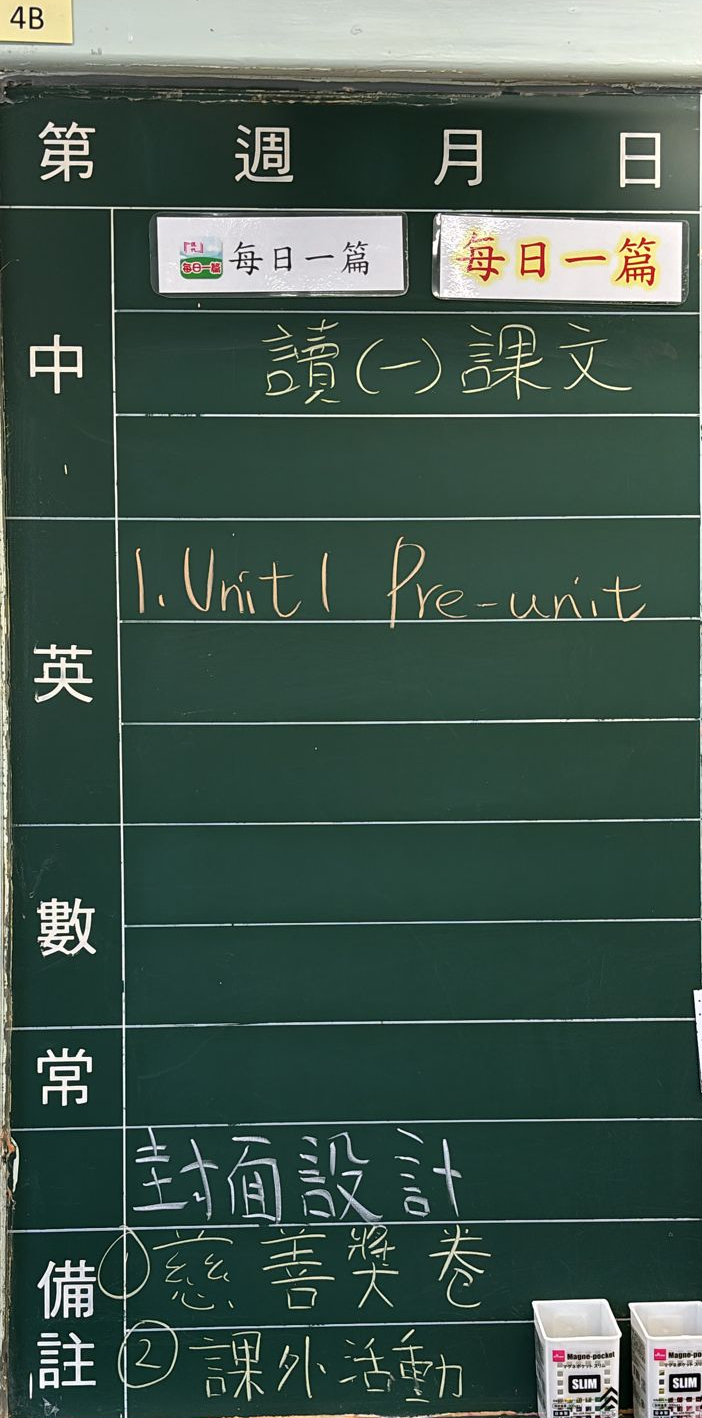 4B
第 週 月 日
每日一篇 每日一篇 每日一篇
中
讀(一)課文
英
1. Unit 1 Pre-unit
數
常
封面設計
備註
① 慈善獎卷
② 課外活動
Magne-pocket Magne-po
SLIM SLIM